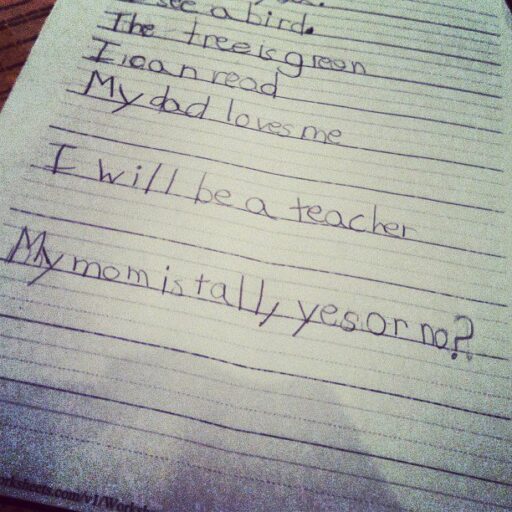 see a bird.
The tree is green
I can read
My dad loves me
I will be a teacher
My mom is tall, yes or no?
orksheets.com/v1/Works